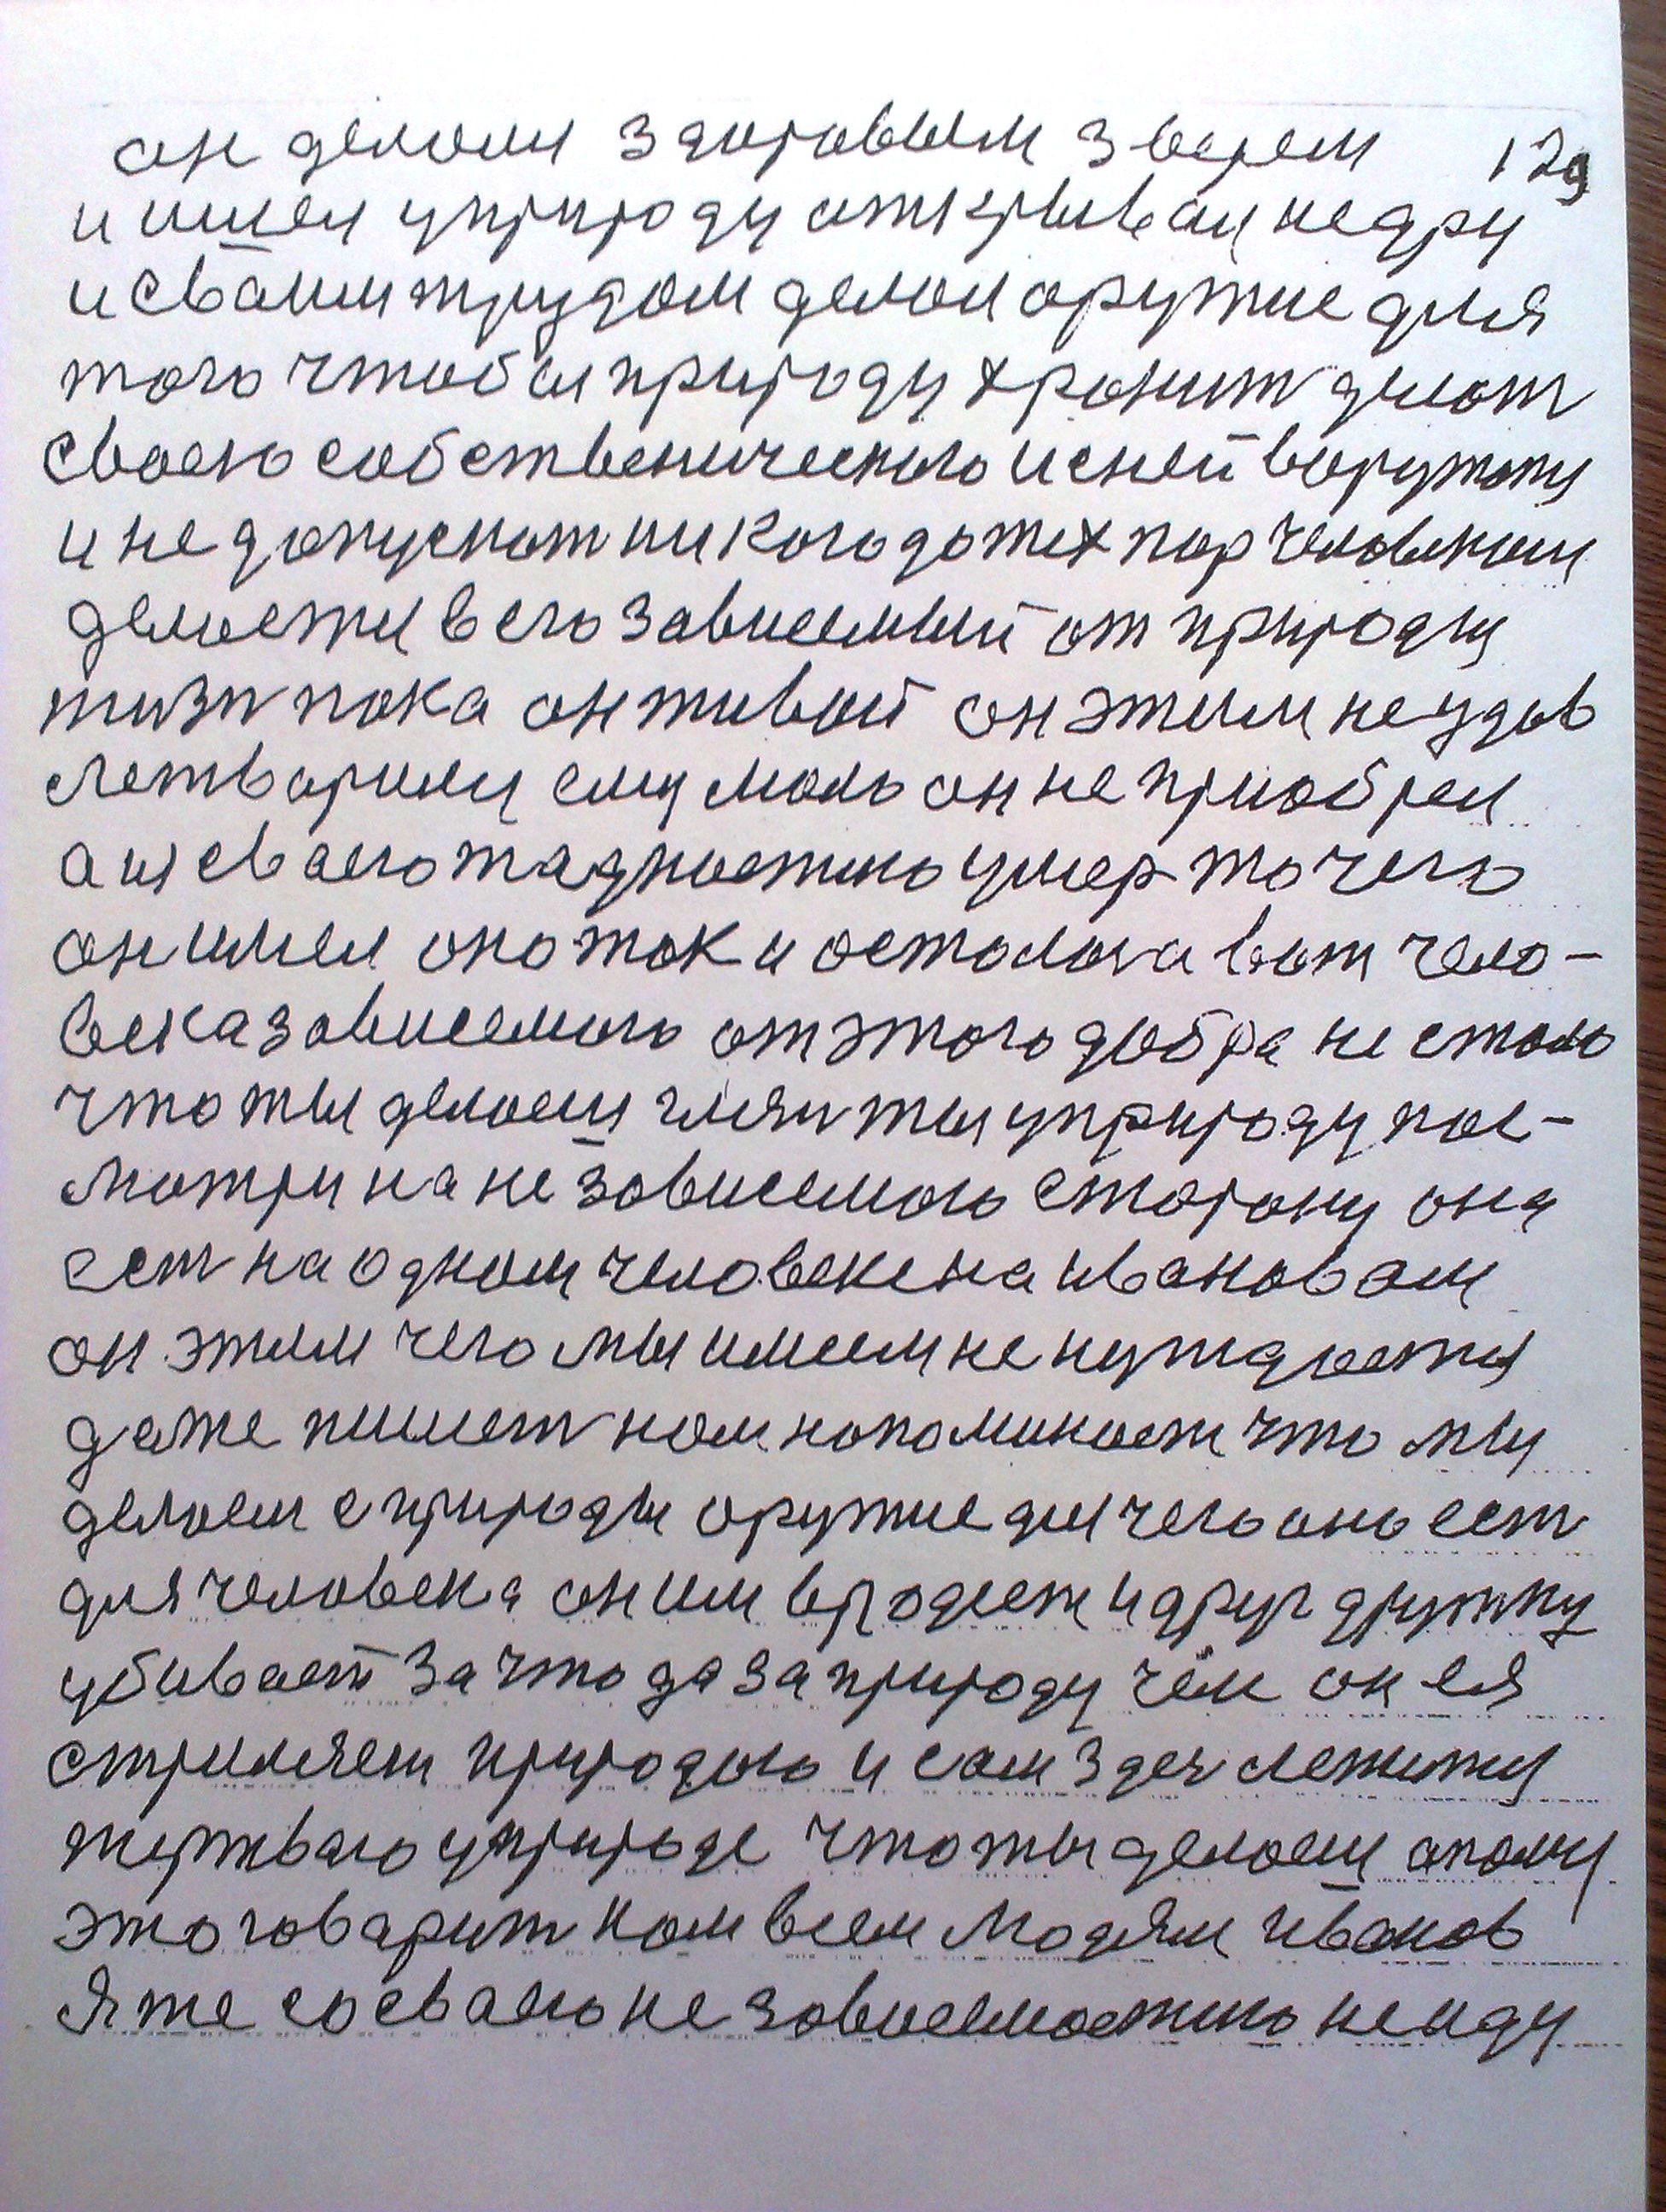 он делом здоровым зверем 129
и шел у природу открывал недру
и своим трудом делал оружие для
того чтобы природу хранит делат
своею собственическою и с ней воружону
и не допускат никого до тех пор человеком
делается в его зависемый от природы
жизн пока он живой он этим не удов
летворили ему мало он не приобрел
а и своею жадностию умер то чего
он имел оно так и осталося вот чело-
века зависемого от этого добра не стало
что ты делаеш глян ты у природу пос-
мотри на не зависемою сторону она
ест на одном человеке на иванован
он этим чего мы имеем не нуждается
даже пишет нам напоминает что мы
делаем с природы оружие для чего оно ест
для человека он им вродует и друг дружку
убивает за что да за природу чем он ея
стриляет природою и сам здес лежит
жертваю у природе что ты делаеш опомн
это говарит нам всем людям иванов
Я же со сваею не зависемостию не иду